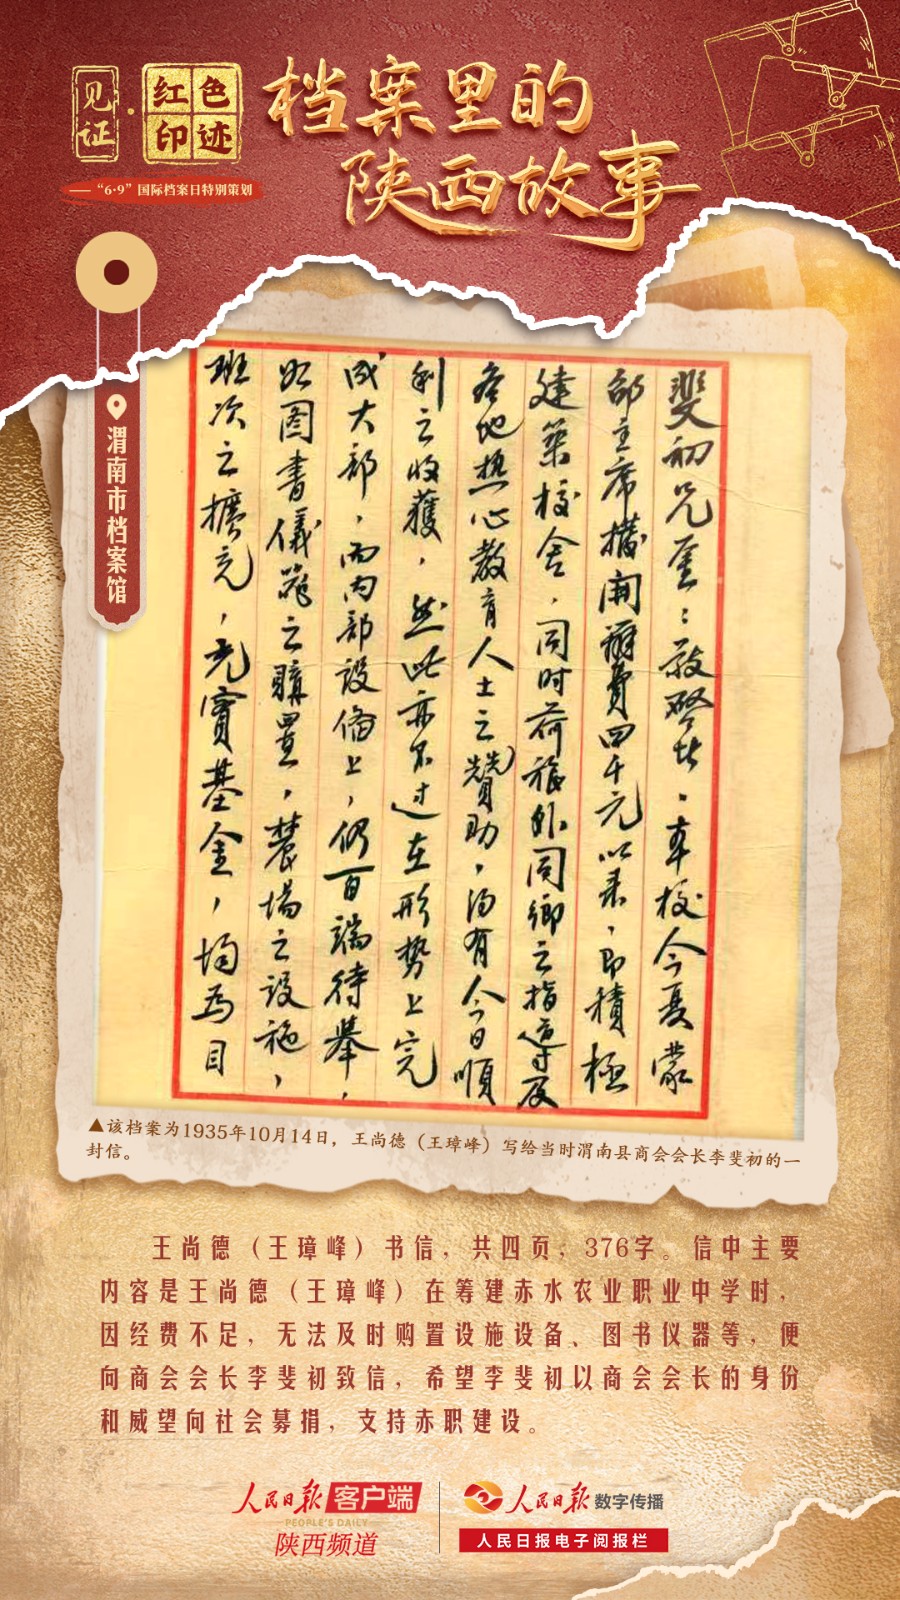 见证·红色印迹
档案里的
陕西故事
——“6·9”国际档案日特别策划
渭南市档案馆
斐初兄鉴：敬啓者，本校今夏蒙
邵主席撥開辦費四千元以来，即積極
建築校舍，同時荷旅外同鄉之指導及
各地热心教育人士之贊助，得有今日順
利之收獲，然此亦不过在形势上完
成大部，而内部設俻上，仍百端待舉，
如图書儀器之購置，農場之設施，
班次之擴充，充實基金，均為目
▲该档案为1935年10月14日，王尚德（王璋峰）写给当时渭南县商会会长李斐初的一
封信。
王尚德（王璋峰）书信，共四页，376字。信中主要
内容是王尚德（王璋峰）在筹建赤水农业职业中学时，
因经费不足，无法及时购置设施设备、图书仪器等，便
向商会会长李斐初致信，希望李斐初以商会会长的身份
和威望向社会募捐，支持赤职建设。
人民日报 客户端
PEOPLE'S DAILY
陕西频道
人民日报 数字传播
人民日报电子阅报栏